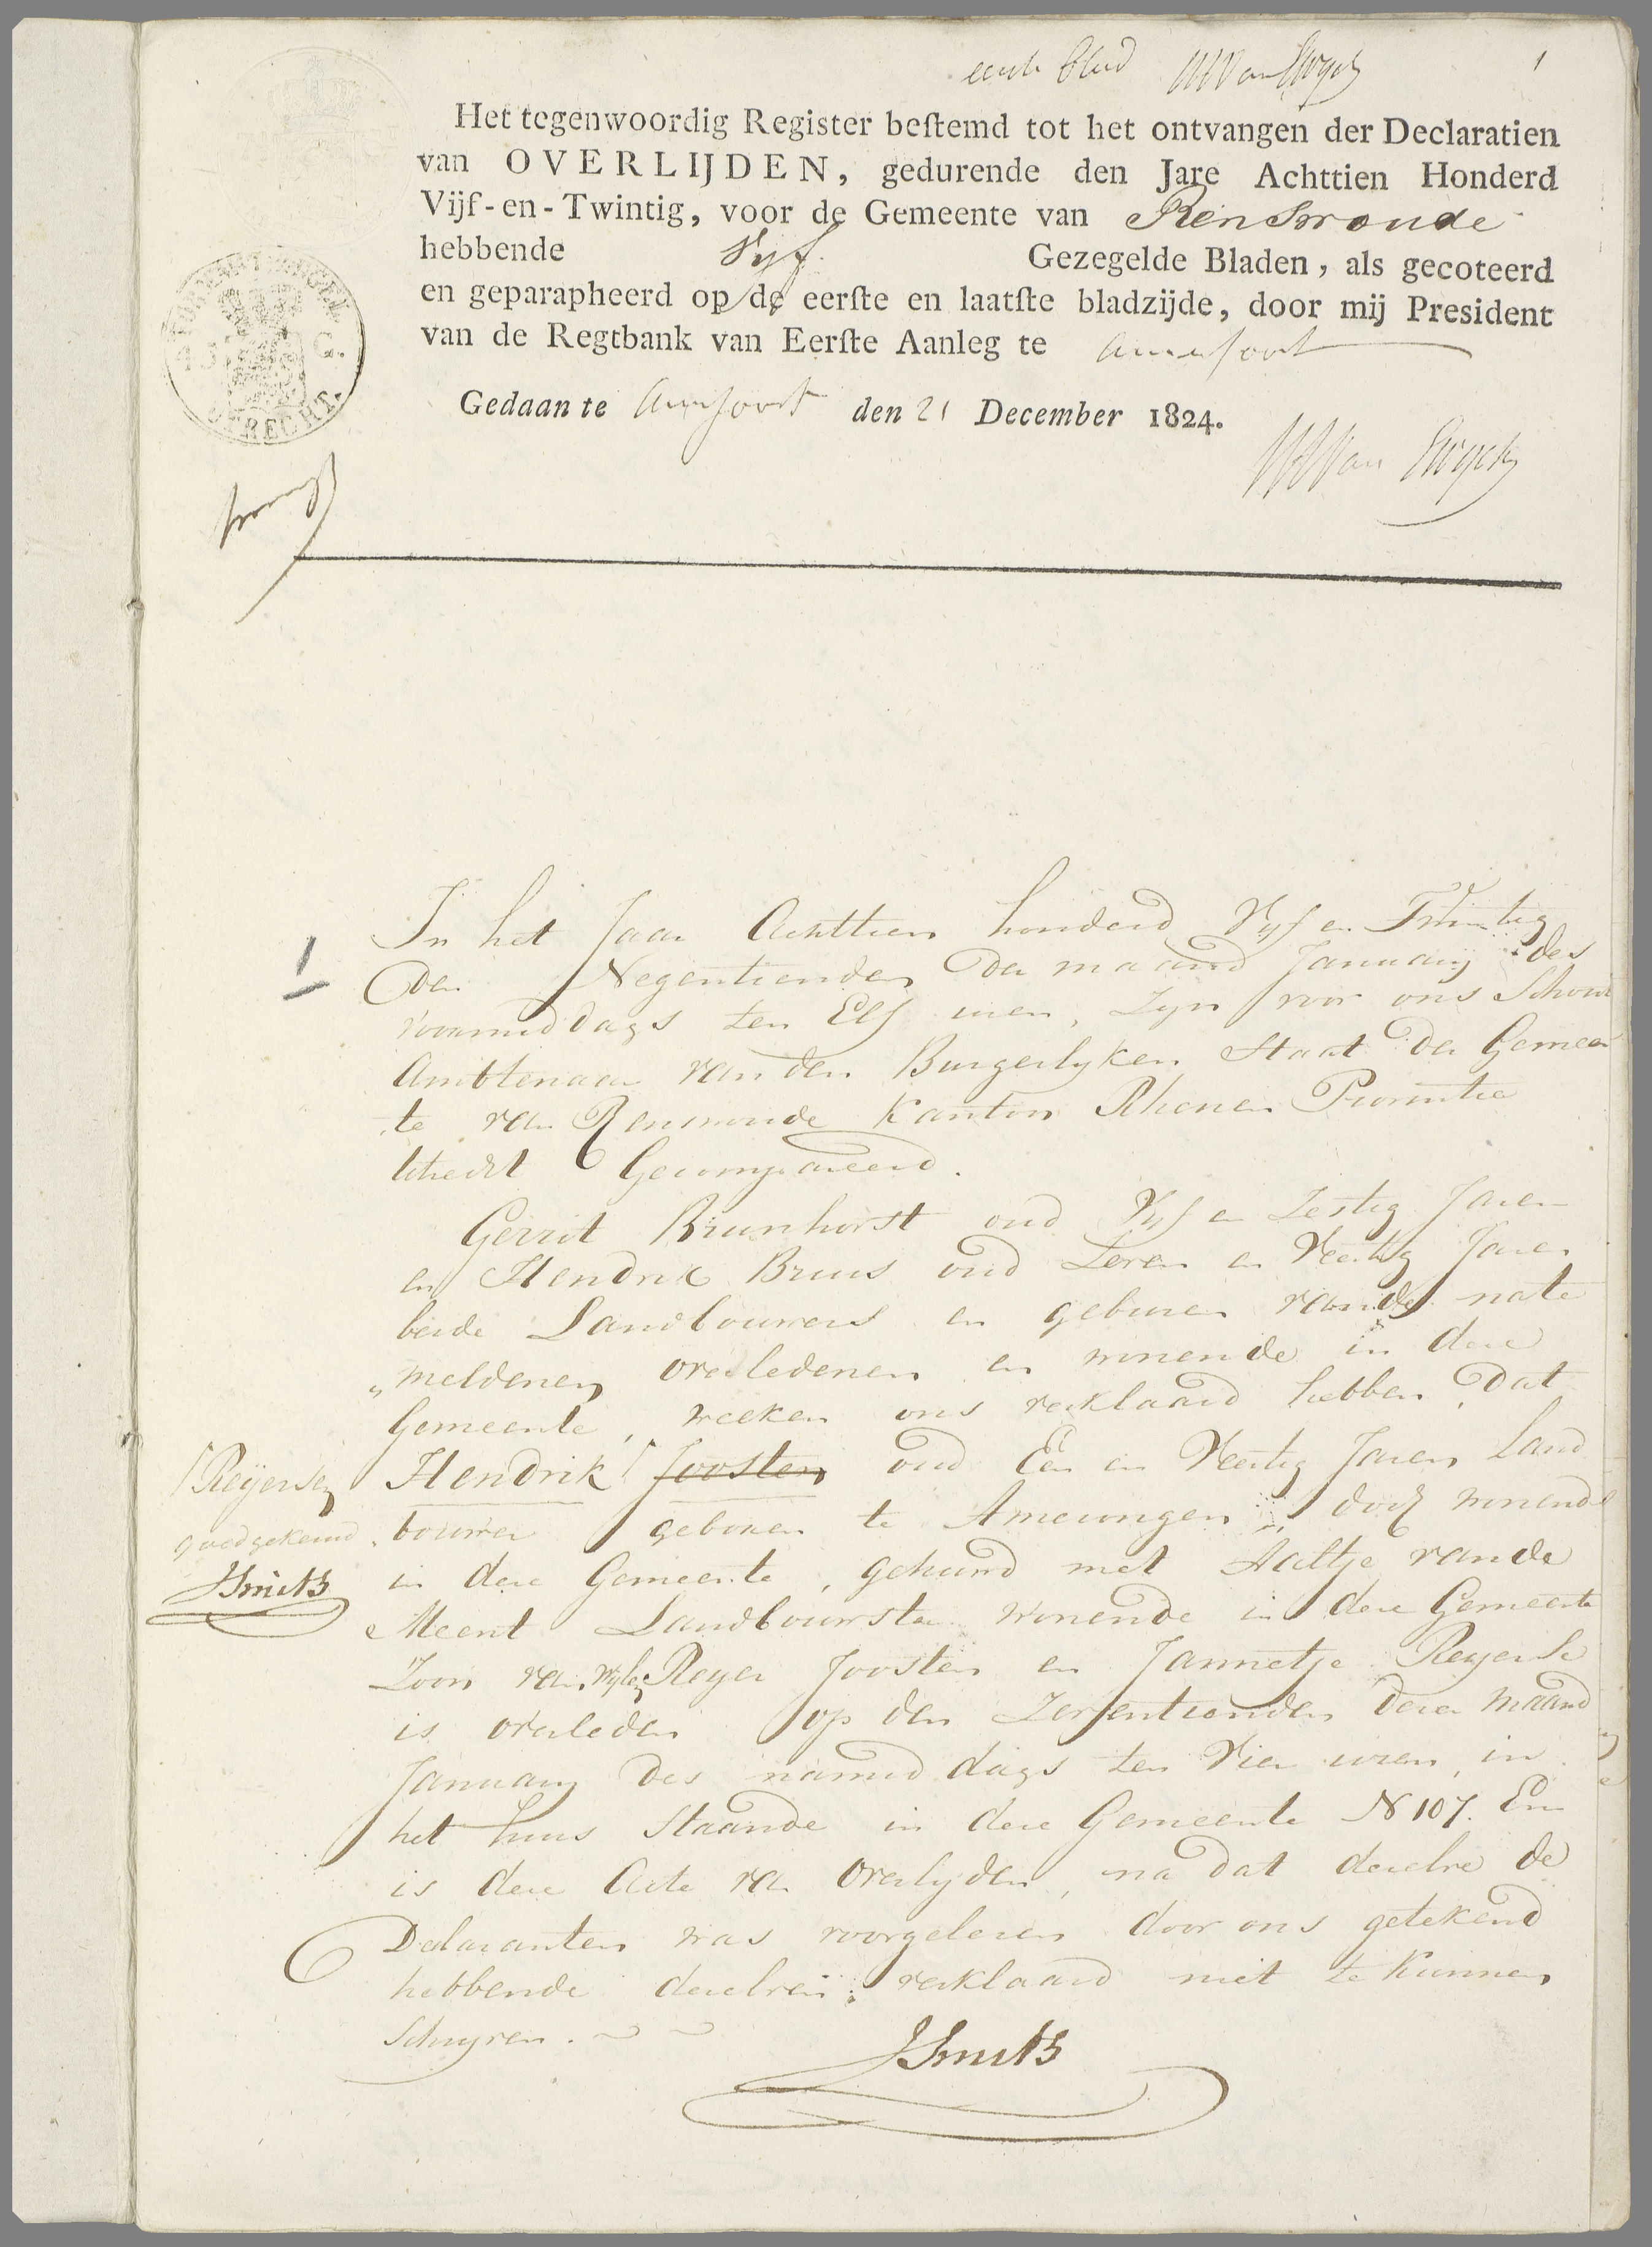 eerste blad WH van EWyck
1
Het tegenwoordig Register bestemd tot het ontvangen der Declaratien
van OVERLIJDEN, gedurende den Jare Achttien Honderd
Vijf-en-Twintig, voor de Gemeente van Renswoude
hebbende Vyf Gezegelde Bladen, als gecoteerd
en geparapheerd op de eerste en laatste bladzijde, door mij President
van de Regtbank van Eerste Aanleg te Amersfoort
Gedaan te Amersfoort den 21 December 1824.
UTRECHT.
In het Jaar Achttien honderd Vyf en Twintig
1
den Negentienden der maand January des
voormiddags ten Elf uren, Zyn voor ons Schout
Ambtenaar van den Burgerlyken Staat der Gemeen
te van Renswoude Kanton Rhenen Provintie
Utrecht Gecompareerd.
Gerrit Bruinhorst oud Vyf en Zestig Jaren
en Hendrik Bruis oud Zeven en Veertig Jaren
beide Landbouwers en geburen van de nate
"meldenen overledenen en wonende in deze
Gemeente, welken ons verklaard hebben, dat
Hendrik ⌈ Joosten oud Een en Veertig Jaren Land
⌈Reijersen
goedgekeurd.
JSmits
bouwer geboren te Amerongen, doch wonende
in deze Gemeente, gehuwd met Aaltje van de
Meent Landbouwster wonende in deze Gemeente
Zoon van wylen Reyer Joosten en Jannetje Reyerse
is overleden op den Zeventienden dezer maand
January des namiddags ten Vier uren, in
het huis Staande in deze Gemeente N 107. En
is deze Acte van Overlyden, na dat dezelve de
Declaranten was voorgelezen door ons getekend
hebbende dezelven verklaard niet te kunnen
Schryven.
JSmits